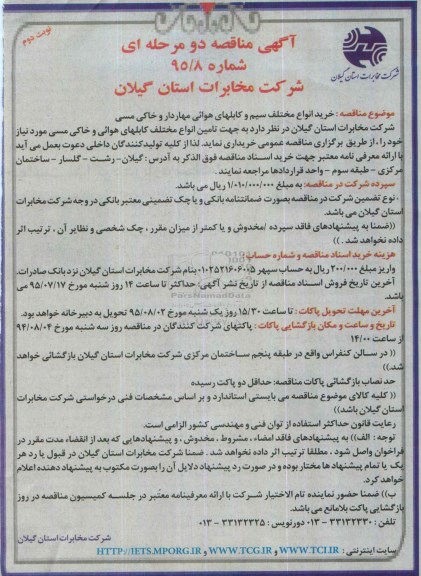 نوبت دوم
آگهی مناقصه دو مرحله ای
شماره ۹۵/۸
شرکت مخابرات استان گیلان
شرکت مخابرات استان گیلان
موضوع مناقصه : خرید انواع مختلف سیم و کابلهای هوائی مهاردار و خاکی مسی
شرکت مخابرات استان گیلان در نظر دارد به جهت تامین انواع مختلف کابلهای هوائی و خاکی مسی مورد نیاز
خود را ، از طریق برگزاری مناقصه عمومی خریداری نماید. لذا از کلیه تولیدکنندگان داخلی دعوت بعمل می آید
با ارائه معرفی نامه معتبر جهت خرید اسناد مناقصه فوق الذکر به آدرس : گیلان- رشت - گلسار - ساختمان
مرکزی - طبقه سوم - واحد قراردادها مراجعه نمایند .
سپرده شرکت در مناقصه: به مبلغ ۱/۰۱۰/۰۰۰/۰۰۰ ریال می باشد.
، نوع تضمین شرکت در مناقصه بصورت ضمانتنامه بانکی و یا چک تضمینی معتبر بانکی در وجه شرکت مخابرات
استان گیلان می باشد.
((ضمنا به پیشنهادهای فاقد سپرده /مخدوش و یا کمتر از میزان مقرر ، چک شخصی و نظایر آن ، ترتیب اثر
داده نخواهد شد . ))
هزینه خرید اسناد مناقصه و شماره حساب
واریز مبلغ ۲۰۰/۰۰۰ ریال به حساب سپهر ۰۱۰۲۵۲۱۶۰۶۰۰۵ بنام شرکت مخابرات استان گیلان نزد بانک صادرات.
آخرین تاریخ فروش اسناد مناقصه از تاریخ نشر آگهی: حداکثر تا ساعت ۱۴ روز شنبه مورخ ۹۵/۰۷/۱۷ می
باشد.
آخرین مهلت تحویل پاکات : تا ساعت ۱۵/۳۰ روز یک شنبه مورخ ۹۵/۰۸/۰۲ تحویل به دبیرخانه خواهد بود.
تاریخ و ساعت و مکان بازگشایی پاکات : پاکتهای شرکت کنندگان در مناقصه روز سه شنبه مورخ ۹۴/۰۸/۰۴
از ساعت ۱۴/۰۰
(( در سالن کنفراس واقع در طبقه پنجم ساختمان مرکزی شرکت مخابرات استان گیلان بازگشائی خواهد
شد))
حد نصاب بازگشائی پاکات مناقصه: حداقل دو پاکت رسیده
(( کلیه کالای موضوع مناقصه می بایستی استاندارد و بر اساس مشخصات فنی درخواستی شرکت مخابرات
استان گیلان باشد))
رعایت قانون حداکثر استفاده از توان فنی و مهندسی کشور الزامی است.
توجه : الف)) به پیشنهادهای فاقد امضاء ، مشروط ، مخدوش ، و پیشنهادهایی که بعد از انقضاء مدت مقرر در
فراخوان واصل شود ، مطلقا ترتیب اثر داده نخواهد شد . ضمنا شرکت مخابرات استان گیلان در قبول یا رد هر
یک یا تمام پیشنهاد ها مختار بوده و در صورت رد پیشنهاد دلایل آن را بصورت مکتوب به پیشنهاد دهنده اعلام
خواهد کرد.
ب)) ضمنا حضور نماینده تام الاختیار شرکت با ارائه معرفینامه معتبر در جلسه کمیسیون مناقصه در روز
بازگشایی پاکت بلامانع می باشد.
تلفن : ۳۳۱۳۲۳۳۰ - ۰۱۳ دورنویس : ۳۳۱۳۲۳۲۵ - ۰۱۳
شرکت مخابرات استان گیلان
سایت اینترنتی : WWW.TCI.IR و WWW.TCG.IR و HTTP://IETS.MPORG.IR